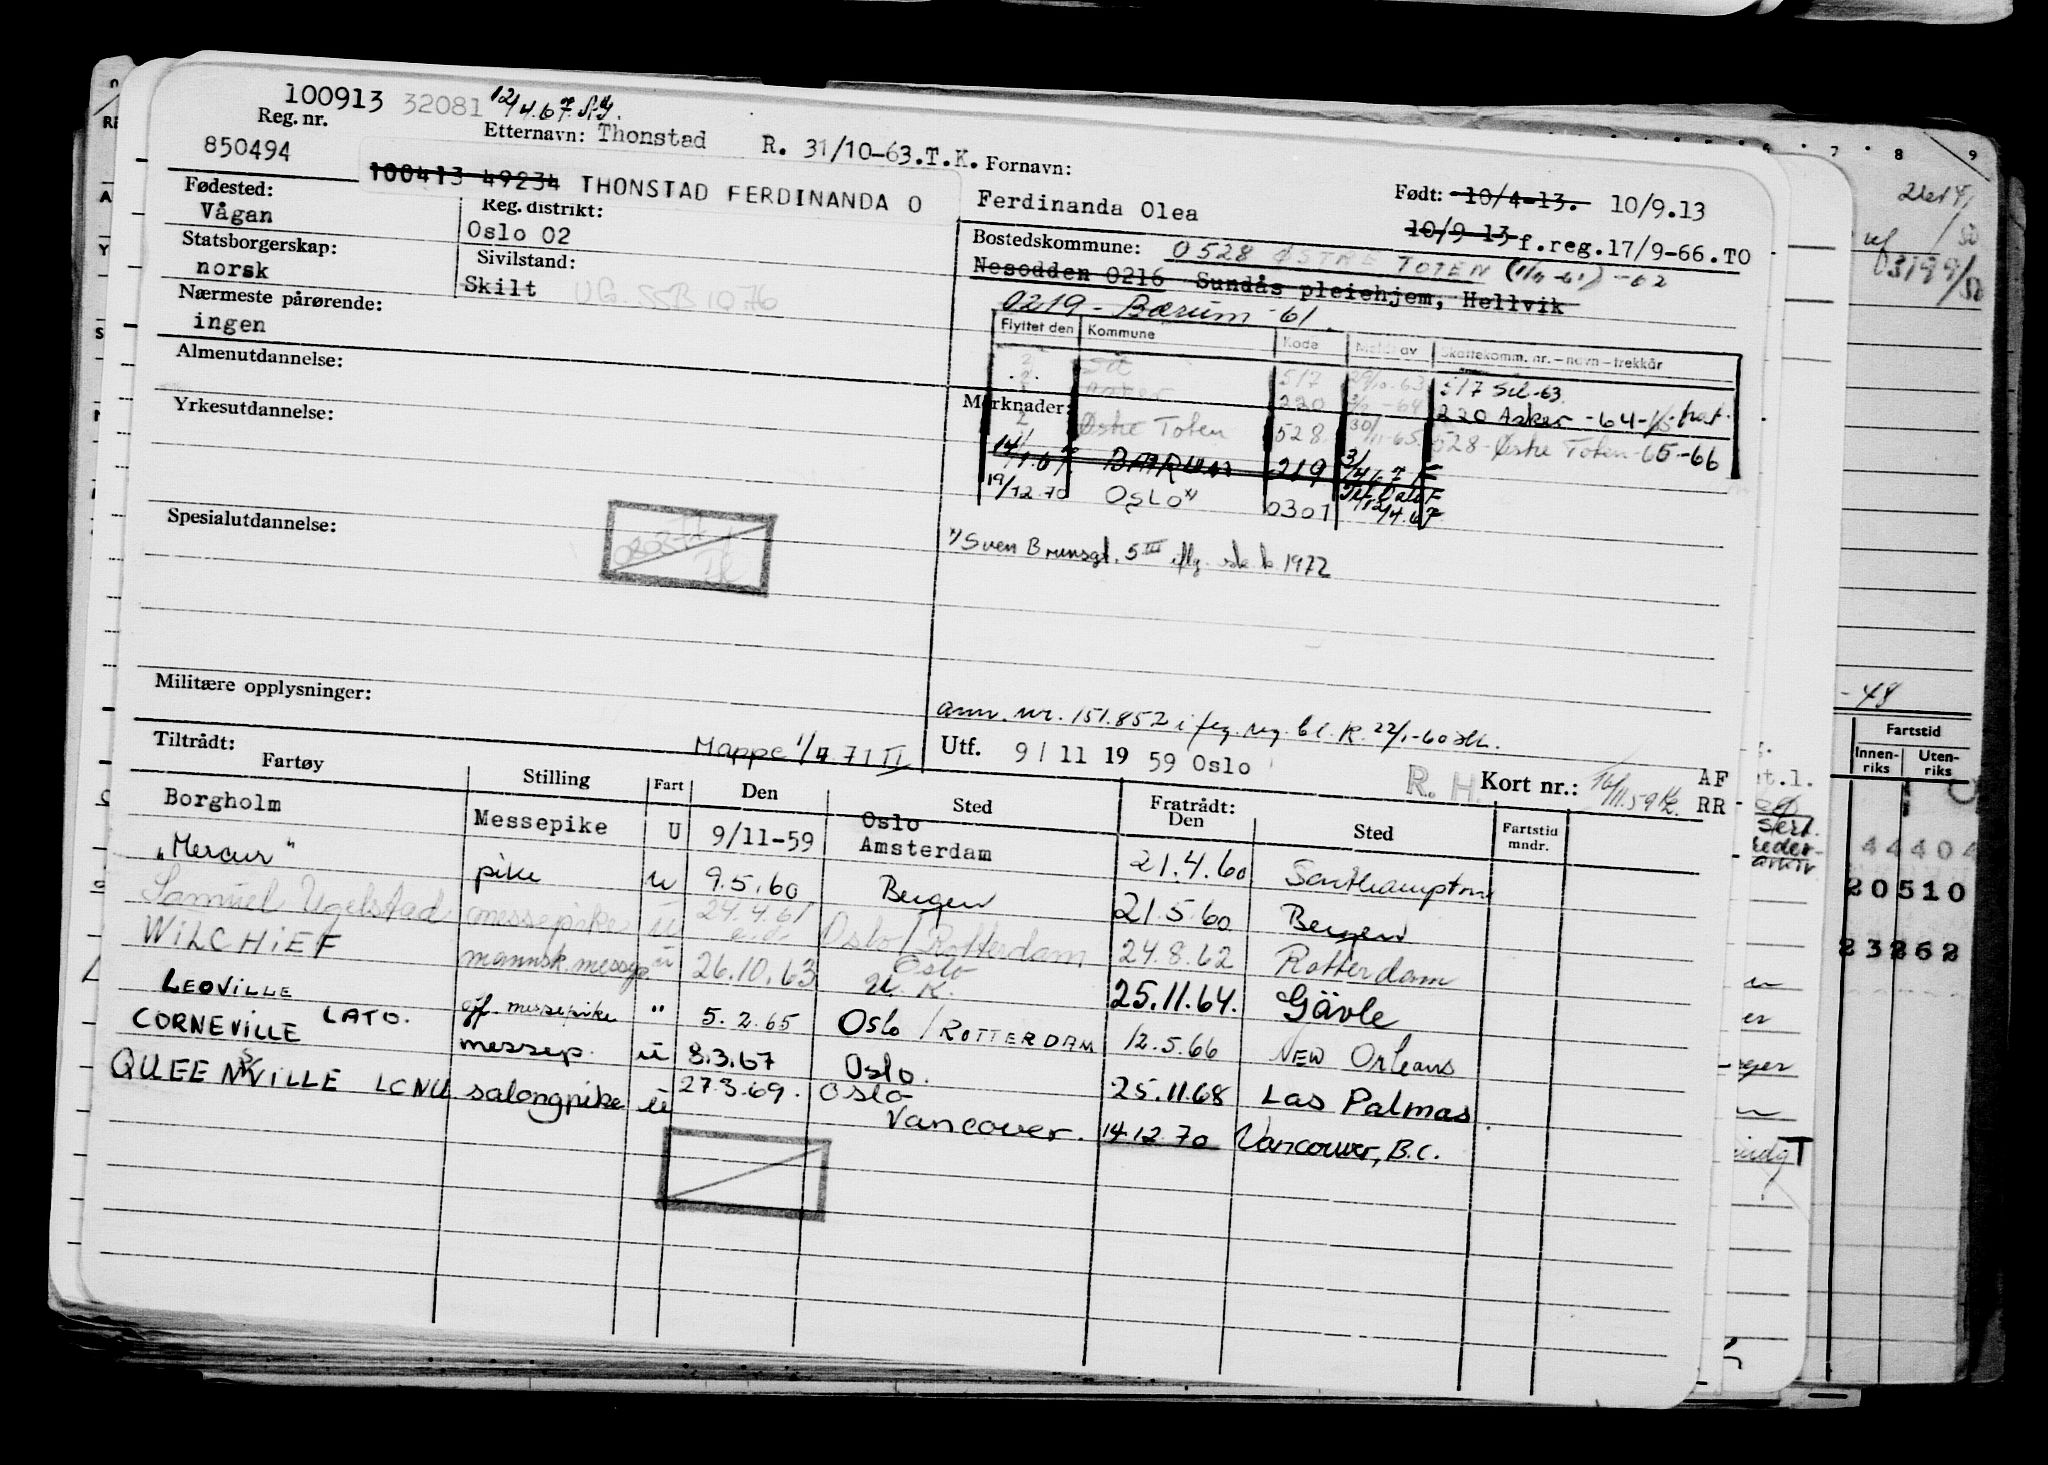 100913 32081 12/4.67.
Reg. nr.
850494
Etternavn: Thonstad R. 31/10-63.T.K. Fornavn:
100413 49234 THONSTAD FERDINANDA O
Ferdinanda Olea
Født: 10/4-13. 10/9.13
10/9 13 f.reg.17/9-66.TO
Fødested:
Vågan
Reg. distrikt:
Oslo 02
Bostedskommune: 0528 ØSTRE TOTEN -62
Nesodden 0216 Sundås pleiehjem, Hellvik
0219 - Bærum -61.
Statsborgerskap:
norsk
Sivilstand:
Skilt UG. SSB 1076
Nærmeste pårørende:
ingen
Flyttet den Kommune Kode Meldt av Skattekomm. nr. – navn – trekkår
Sel 517 29/10-63 517 Sel-63
Asker 220 -64 220 Asker -64-
Østre Toten 528 30/11-65. 528-Østre Toten-65-66
14/1.67 BÆRUM 219
19/12.70 OSLO x) 0301 12/4.67
x) Sven Brunsgt. 5 III 1972
Almenutdannelse:
Yrkesutdannelse:
Merknader:
Spesialutdannelse:
Militære opplysninger:
ann. nr. 151.852 i 22/1-60
Mappe 71 II
Utf. 9/11 1959 Oslo
R. H. Kort nr.: 16/11.59 AF
RR
Tiltrådt:
Fartøy Stilling Fart Den Sted Fratrådt: Den Sted Fartstid mndr.
Borgholm Messepike U 9/11-59 Oslo Amsterdam 21.4.60 Southampton
"Mercur" pike u 9.5.60 Bergen 21.5.60 Bergen
Samuel Ugelstad messepike u 24.4.61 Oslo/Rotterdam 24.8.62 Rotterdam
WILCHIEF mannsk.messep. u 26.10.63 Oslo U.K. 25.11.64. Gävle
LEOVILLE LATO. off. messepike " 5.2.65 Oslo / ROTTERDAM 12.5.66 NEW Orleans
CORNEVILLE messep. u 8.3.67 Oslo. 25.11.68 Las Palmas
QUEENSVILLE LCNU salongpike u 27.3.69. Oslo Vancouver. 14.12.70 Vancouver, B.C.
7 8 9
-48
Fartstid
Innen-riks Uten-riks
44404
20510
23262